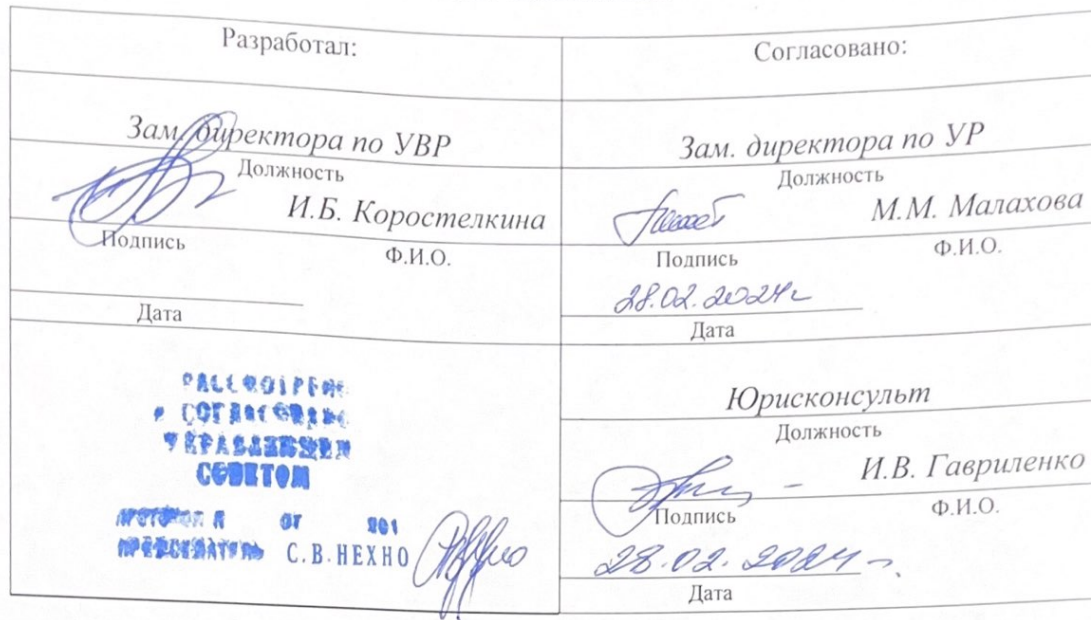 Разработал:
Зам. директора по УВР
Должность
И.Б. Коростелкина
Подпись
Ф.И.О.
Дата
РАССМОТРЕНО
И СОГЛАСОВАНО
УПРАВЛЯЮЩИМ
СОВЕТОМ
ПРОТОКОЛ № ОТ 201
ПРЕДСЕДАТЕЛЬ С.В.НЕХНО
Согласовано:
Зам. директора по УР
Должность
М.М. Малахова
Подпись
Ф.И.О.
28.02.2024г
Дата
Юрисконсульт
Должность
И.В. Гавриленко
Подпись
Ф.И.О.
28.02.2024г.
Дата